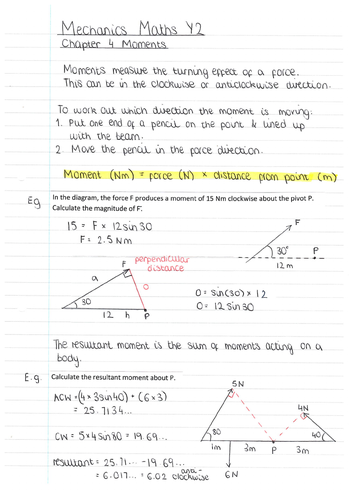 Mechanics Maths Y2
Chapter 4 Moments
Moments measure the turning effect of a force.
This can be in the clockwise or anticlockwise direction.
To work out which direction the moment is moving:
1. Put one end of a pencil on the point & lined up
with the beam.
2. Move the pencil in the force direction.
Moment (Nm) = force (N) × distance from point (m)
Eg
In the diagram, the force F produces a moment of 15 Nm clockwise about the pivot P.
Calculate the magnitude of F.
15 = F × 12sin30
F = 2.5 Nm
F
30°
P
12 m
perpendicular
distance
F
a
O
30
12 h P
O = sin(30) × 12
O = 12 sin30
The resultant moment is the sum of moments acting on a
body.
E.g.
Calculate the resultant moment about P.
ACW = (4 × 3sin40) + (6 × 3)
= 25.7134...
CW = 5×4sin80 = 19.69...
resultant = 25.71... - 19.69...
= 6.017... = 6.02 anti-clockwise
5N
4N
80
40
1m 3m P 3m
6N